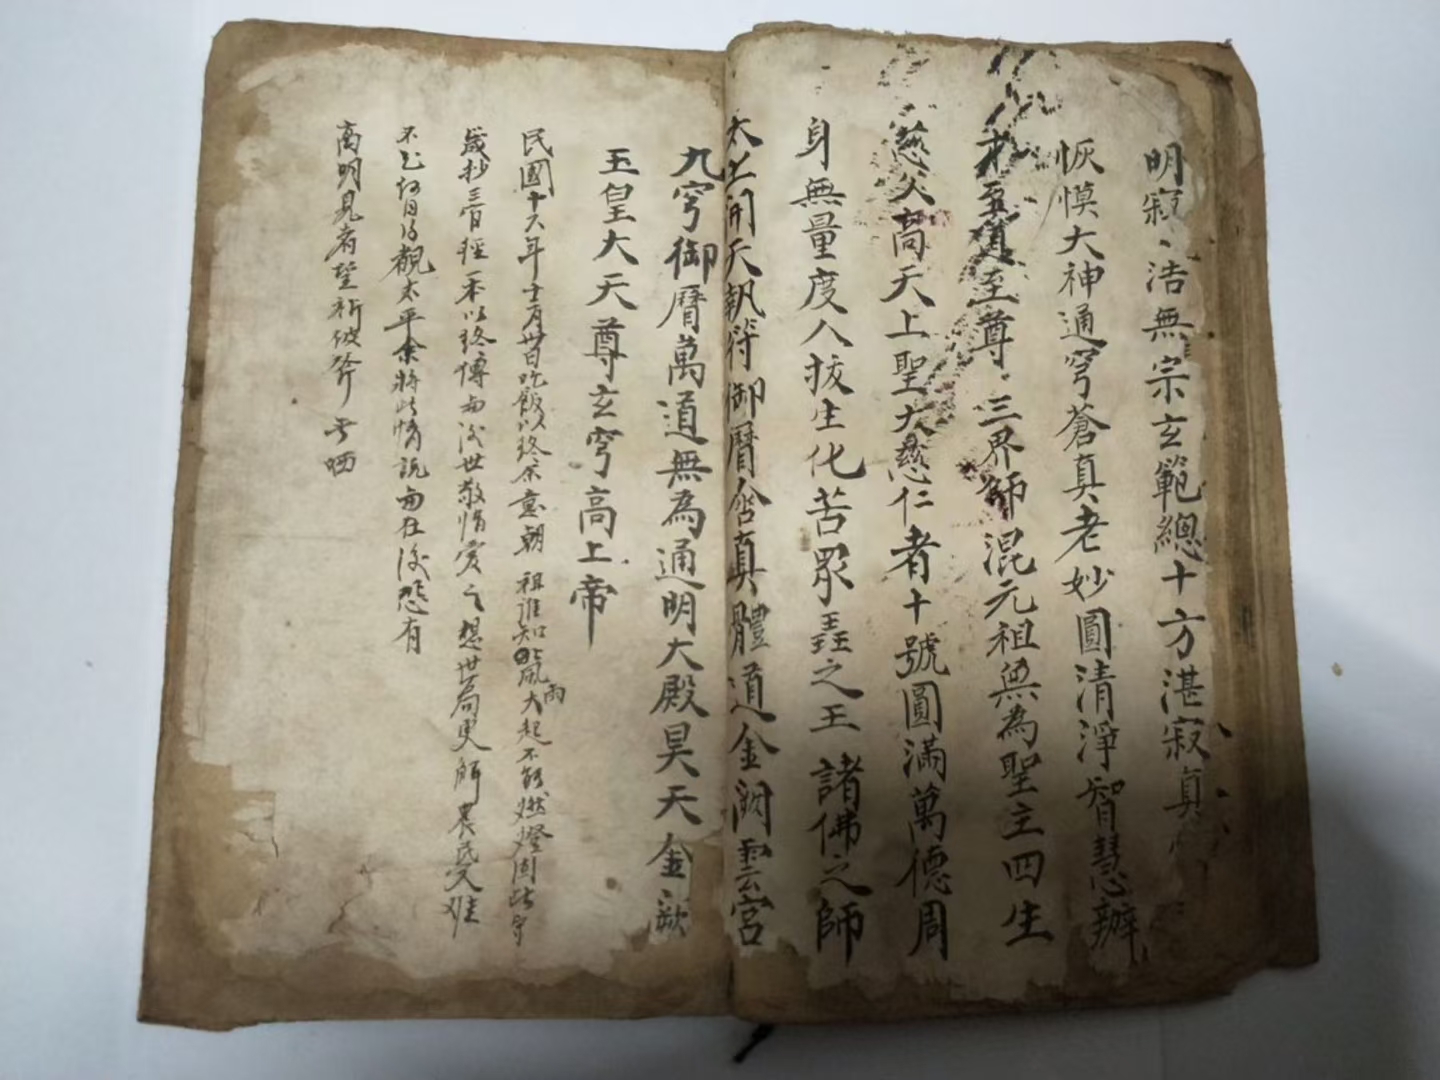 明寂、浩無宗玄範總十方湛寂真
恢慔大神通穹蒼真老妙圓清淨智慧辯
才至道至尊三界師混元祖無為聖主四生
慈父高天上聖大慈仁者十號圓滿萬德周
身無量度人拔生化苦眾聖之王諸佛之師
太上開天執符御曆含真體道金闕雲宮
九穹御曆萬道無為通明大殿昊天金闕
玉皇大天尊玄穹高上帝
民國十六年十二月廿日吃飯以終余意朝祖誰知風雨大起不能燃燈因此守
歲抄三官經一本以終傳与後世敬惜愛之想世局更 農民受难
不知何日得觀太平余將此情說与在後恐有
高明見者望祈 斧 哂